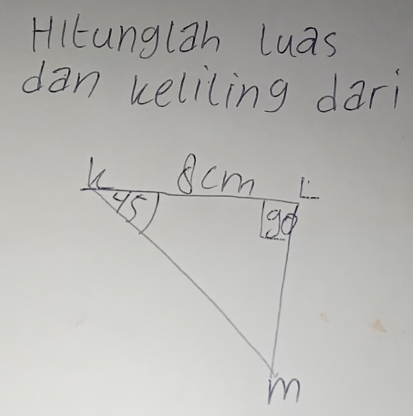 HItunglah luas
dan keliling dari
k 8cm L
45 90
m